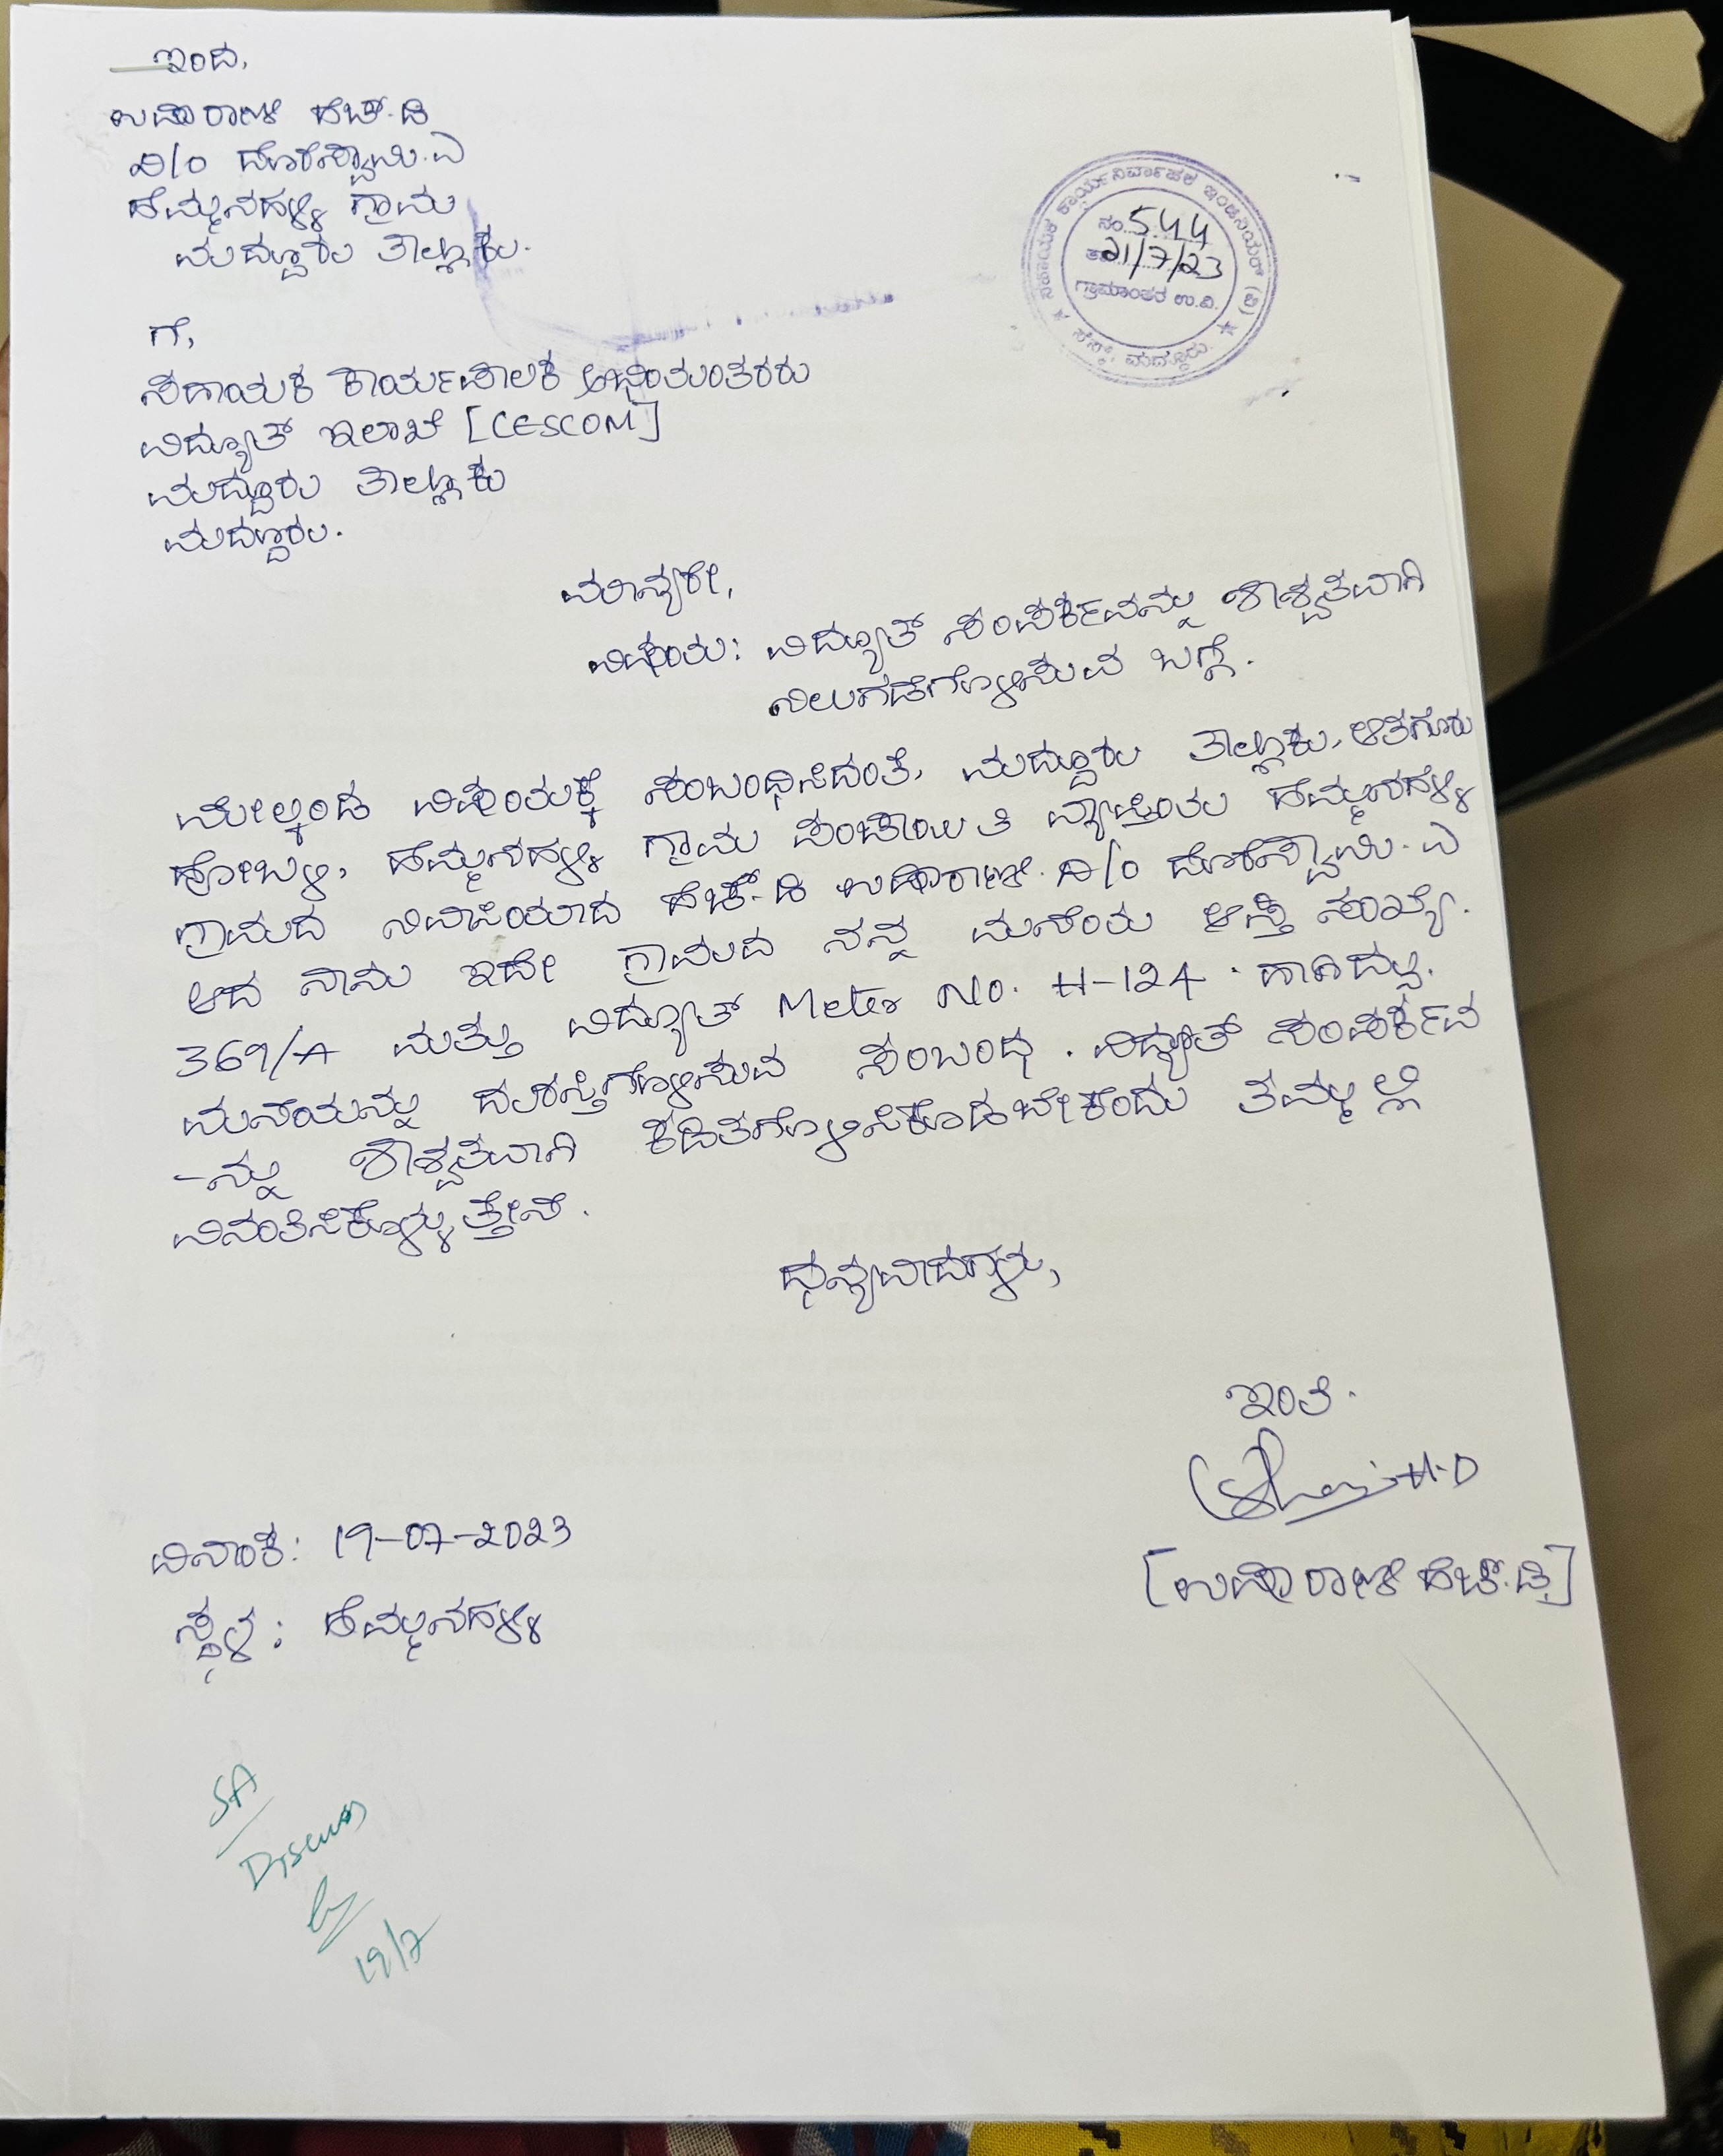 ಇಂದ,
ಉಷಾರಾಣಿ ಹೆಚ್.ಡಿ
D/o ದೊರೆಸ್ವಾಮಿ.ಎ
ಹೆಮ್ಮನಹಳ್ಳಿ ಗ್ರಾಮ
ಮದ್ದೂರು ತಾಲ್ಲೂಕು.
ಸಹಾಯಕ ಕಾರ್ಯನಿರ್ವಾಹಕ ಇಂಜಿನಿಯರ್ (ವಿ)
ನಂ. 544
21/7/23
ಗ್ರಾಮಾಂತರ ಉ.ವಿ.
ಸೆಸ್ಕ್, ಮದ್ದೂರು.
ಗೆ,
ಸಹಾಯಕ ಕಾರ್ಯಪಾಲಕ ಅಭಿಯಂತರರು
ವಿದ್ಯುತ್ ಇಲಾಖೆ [CESCOM]
ಮದ್ದೂರು ತಾಲ್ಲೂಕು
ಮದ್ದೂರು.
ಮಾನ್ಯರೇ,
ವಿಷಯ: ವಿದ್ಯುತ್ ಸಂಪರ್ಕವನ್ನು ಶಾಶ್ವತವಾಗಿ
ನಿಲುಗಡೆಗೊಳಿಸುವ ಬಗ್ಗೆ.
ಮೇಲ್ಕಂಡ ವಿಷಯಕ್ಕೆ ಸಂಬಂಧಿಸಿದಂತೆ, ಮದ್ದೂರು ತಾಲ್ಲೂಕು, ಆತಗೂರು
ಹೋಬಳಿ, ಹೆಮ್ಮನಹಳ್ಳಿ ಗ್ರಾಮ ಪಂಚಾಯಿತಿ ವ್ಯಾಪ್ತಿಯ ಹೆಮ್ಮನಹಳ್ಳಿ
ಗ್ರಾಮದ ನಿವಾಸಿಯಾದ ಹೆಚ್.ಡಿ ಉಷಾರಾಣಿ. D/o ದೊರೆಸ್ವಾಮಿ.ಎ
ಆದ ನಾನು ಇದೇ ಗ್ರಾಮದ ನನ್ನ ಮನೆಯ ಆಸ್ತಿ ಸಂಖ್ಯೆ.
369/A ಮತ್ತು ವಿದ್ಯುತ್ Meter No. H-124. ಆಗಿದ್ದು.
ಮನೆಯನ್ನು ದುರಸ್ತಿಗೊಳಿಸುವ ಸಂಬಂಧ. ವಿದ್ಯುತ್ ಸಂಪರ್ಕವ
-ನ್ನು ಶಾಶ್ವತವಾಗಿ ಕಡಿತಗೊಳಿಸಿಕೊಡಬೇಕೆಂದು ತಮ್ಮಲ್ಲಿ
ವಿನಂತಿಸಿಕೊಳ್ಳುತ್ತೇನೆ.
ಧನ್ಯವಾದಗಳು,
ಇಂತಿ.
H.D
[ಉಷಾರಾಣಿ ಹೆಚ್.ಡಿ]
ದಿನಾಂಕ: 19-07-2023
ಸ್ಥಳ: ಹೆಮ್ಮನಹಳ್ಳಿ
SA
Discuss
19/7